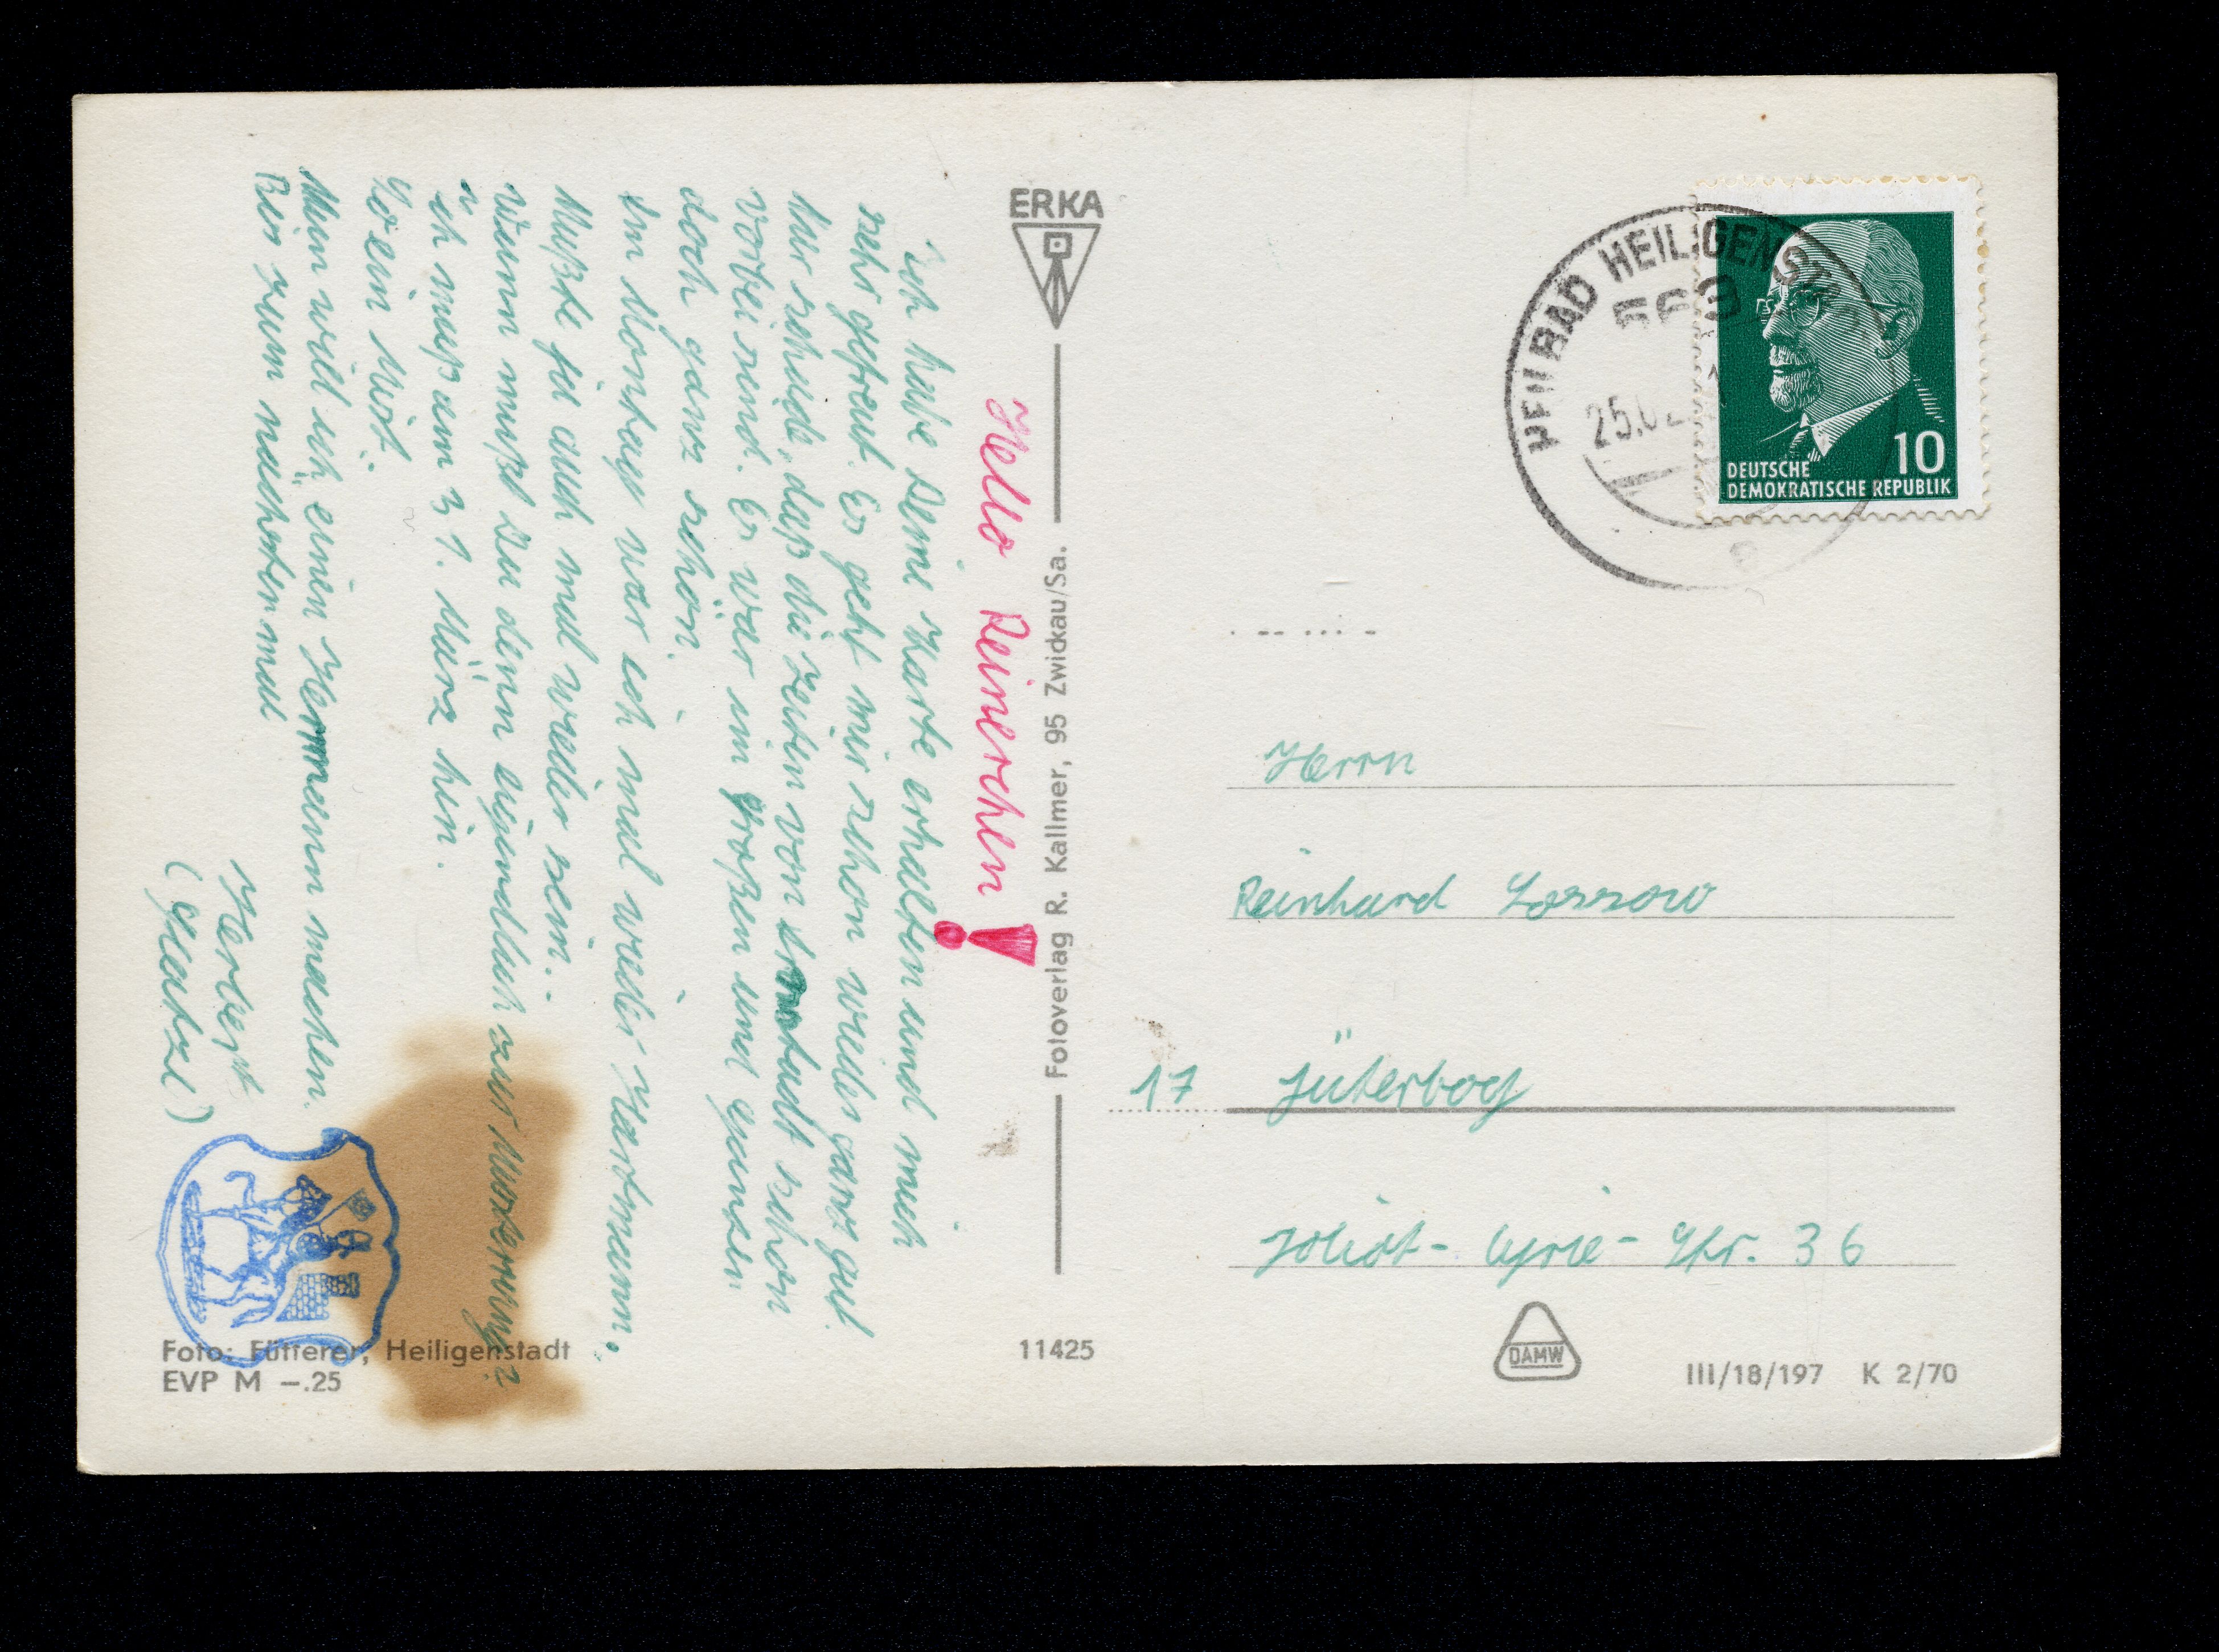 Hello Reinerchen!
Ich habe Deine Karte erhalten und mich
sehr gefreut. Es geht mir schon wieder ganz gut.
Nur schade, daß die Zeiten von schon
vorbei sind. Es war im großen und ganzen
doch ganz schön.
Im Montag war ich mal wieder Hartmann.
Mußte ja auch mal wieder sein.
Wann mußt du denn eigendlich zur Musterung?
ich muß am 31. März hin.
So ein Mist.
Nun will ich einen Hermann machen.
Bis zum nächsten mal
Herbert
(Glatze)
ERKA
Fotoverlag R. Kallmer, 95 Zwickau/Sa.
Foto: Fütterer, Heiligenstadt
EVP M —.25
11425
HEILBAD HEILIGENSTADT
563
25.02
DEUTSCHE
DEMOKRATISCHE REPUBLIK
10
Herrn
Reinhard Lossow
17 Jüterbog
Joliot- Cyrie- Str. 36
DAMW
III/18/197 K 2/70